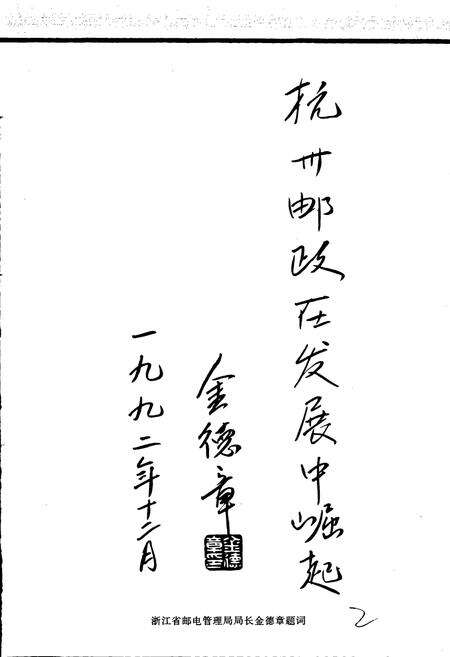 杭州邮政在发展中崛起
金德章
一九九二年十二月
浙江省邮电管理局局长金德章题词
2